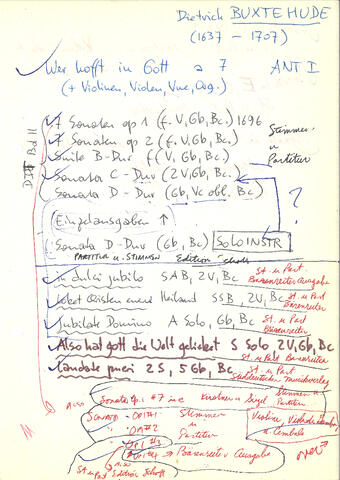 Dietrich BUXTEHUDE
(1637 - 1707)
Wer hofft in Gott a 7 ANT I
(+ Violinen, Violen, Vne, Org.)
7 Sonaten op 1 (f. V, Gb, Bc.) 1696
7 Sonaten op 2 (f. V, Gb, Bc.)
Suite B-Dur f (V, Gb, Bc.)
Sonata C-Dur (2V, Gb, Bc.)
Sonata D-Dur (Gb, Vc obl. Bc)
Stimmen
u
Partitur
Bd 11
?
Einzelausgaben ↑
Sonata D-Dur (Gb, Bc) Solo INSTR
PARTITUR u. STIMMEN Edition Schott
In dulci jubilo SAB, 2V, Bc St. u Part Bärenreiter Ausgabe
Heiland SSB, 2V, Bc St. u Part Bärenreiter
Jubilate Domino A Solo, Gb, Bc St. u Part Bärenreiter
Also hat Gott die Welt geliebet S Solo 2V, Gb, Bc
St. u Part Bärenreiter
Laudate pueri 2 S, 5 Gb, Bc St. u Part
Süddeutscher Musikverlag
Also
Sonate Op. 1 #7 in e
Stimmen u
Partitur
Sonaten Op 1 #1
Op 1 #2
Op 1 #3
Op 1 #4
Stimmen
u
Partitur
Bärenreiter Ausgabe
Violine
u. Cembalo
Also
St. u Part Edition Schott
over